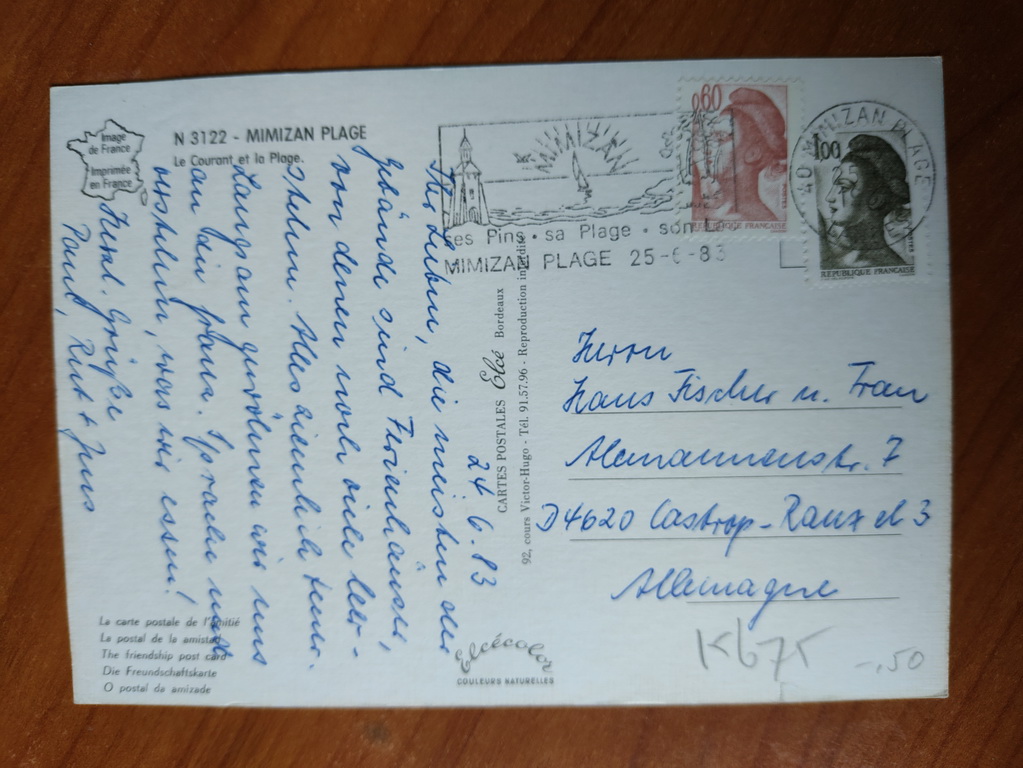 Image
de France
Imprimée
en France
N 3122 - MIMIZAN PLAGE
Le Courant et la Plage.
24.6.83
Ihr Lieben, die meisten der
Gebäude sind Ferienhäuser,
von denen noch viele leer-
stehen. Alles ziemlich teuer.
Langsam gewöhnen wir uns
an die franz. Sprache und
verstehen, was wir essen!
Herzl. Grüße
Paul, Rut + Jens
La carte postale de l'amitié
La postal de la amistad
The friendship post card
Die Freundschaftskarte
O postal da amizade
CARTES POSTALES Elcé Bordeaux
92, cours Victor-Hugo - Tél. 91.57.96 - Reproduction interdite
Elcécolor
COULEURS NATURELLES
MIMIZAN
ses Pins • sa Plage • son
MIMIZAN PLAGE 25-6-83
0,60
REPUBLIQUE FRANÇAISE
1,00
REPUBLIQUE FRANÇAISE
40 MIMIZAN PLAGE
Herrn
Hans Fischer u. Frau
Alemannenstr. 7
D4620 Castrop-Rauxel 3
Allemagne
Kb75
-,50